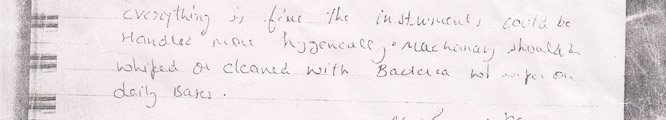 everything is fine the insturments could be
Handled more hygenically, machanary should be
whiped or cleaned with Bacterea wipes on
daily Bases.